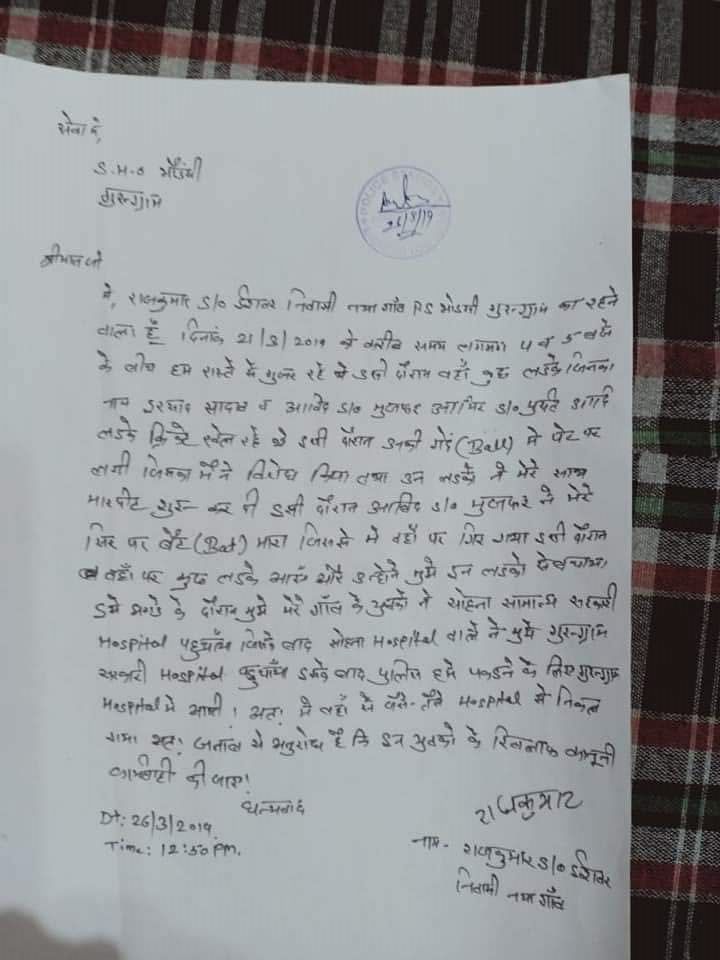 सेवा में,
S.H.O भौंडसी
गुरुग्राम
POLICE
26/3/19
श्रीमान जी
मैं, राजकुमार S/o ईश्वर निवासी नया गाँव P.S भोडसी गुरुग्राम का रहने
वाला हूँ दिनांक 21/3/2019 को करीब समय लगभग 4 व 5 बजे
के बीच हम रास्ते से गुजर रहे थे उसी दौरान वहाँ कुछ लडके जिनका
नाम इरशाद साहब व आबिद S/o मुजफर आमिर S/o आदि
लडके क्रिकेट खेल रहे थे इसी दौरान उनकी गेंद (Ball) मेरे पेट पर
लगी जिसका मैंने विरोध किया तथा उन लडकों ने मेरे साथ
मारपीट शुरू कर दी इसी दौरान आबिद S/o मुजफर ने मेरे
सिर पर बैट (Bat) मारा जिससे मैं वहाँ पर गिर गया इसी दौरान
वहाँ पर कुछ लडके आए और उन्होंने मुझे इन लडकों
इस झगडे के दौरान मुझे मेरे गाँव के युवकों ने सोहना सामान्य सरकारी
Hospital पहुचाँया जिसके बाद सोहना Hospital वालों ने मुझे गुरुग्राम
सरकारी Hospital पहुचाँया इसके बाद पुलिस हमें पकडने के लिए गुरुग्राम
Hospital में आयी। अतः मैं वहाँ से जैसे-तैसे Hospital से निकल
गया अतः जनाब से अनुरोध है कि इन युवकों के खिलाफ कानूनी
कार्यवाही की जाए।
धन्यवाद
Dt: 26/3/2019
Time: 12:50 pm.
राजकुमार
नाम - राजकुमार S/o ईश्वर
निवासी नया गाँव